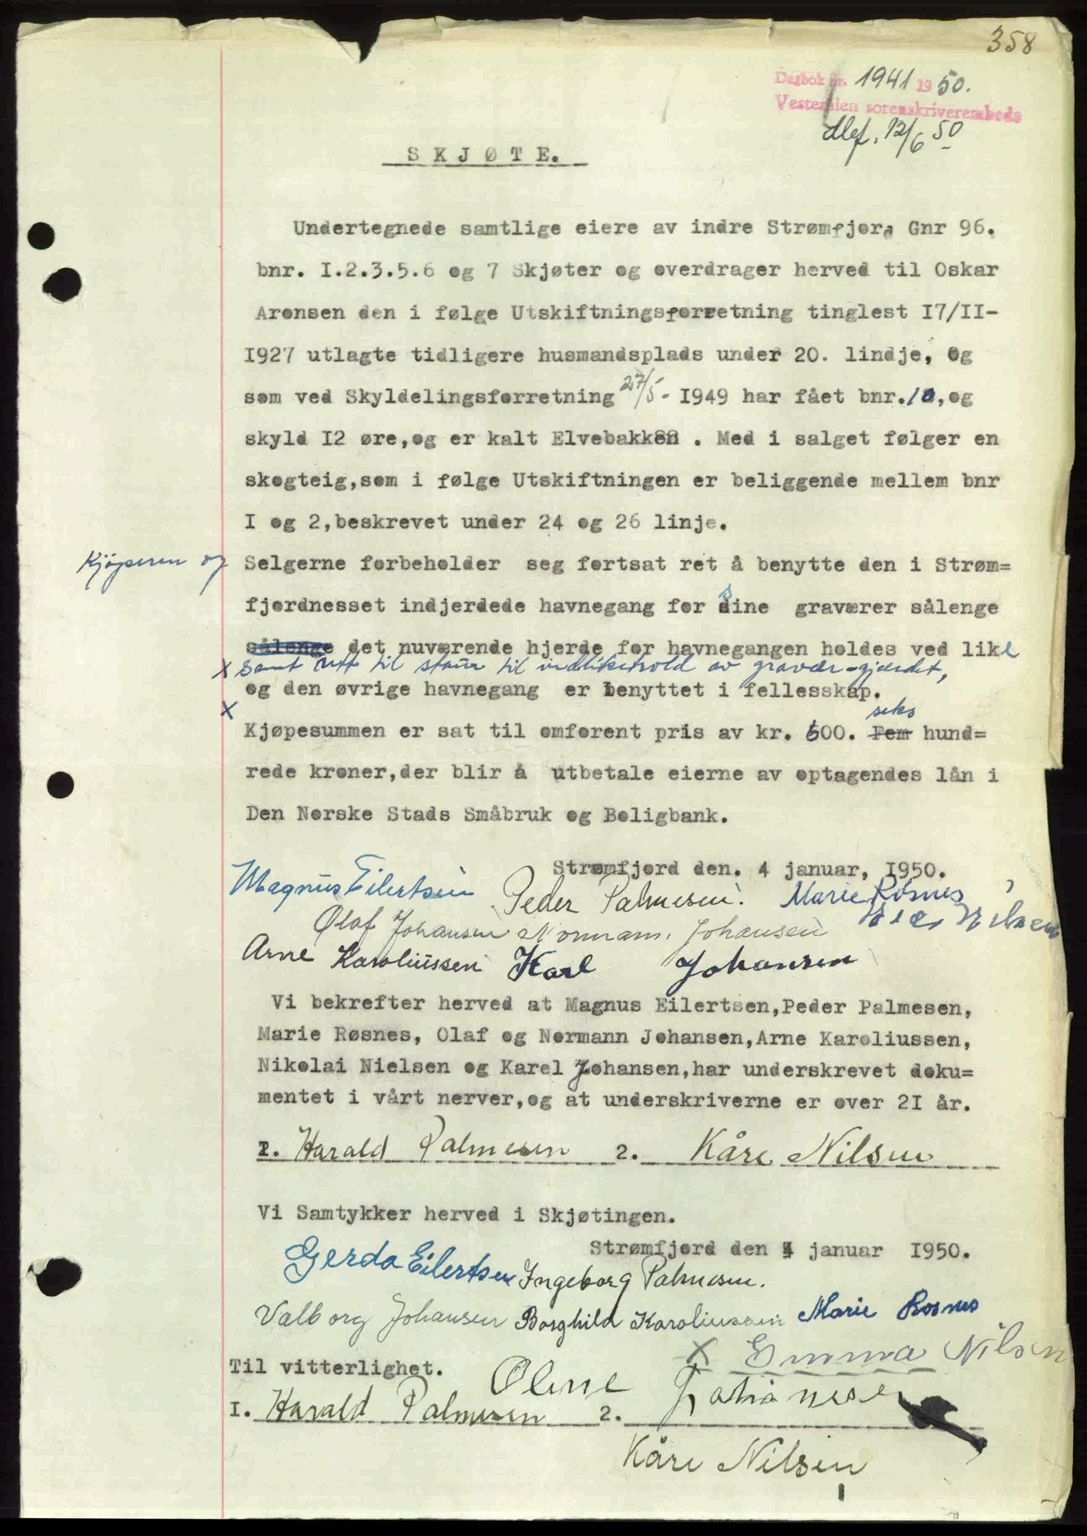 358
Dagbok nr. 1941 1950.
Vesterålen sorenskriverembede
dlef. 12/6 50
SKJØTE.
Undertegnede samtlige eiere av indre Strømfjord Gnr 96.
bnr. I.2.3.5.6 og 7 Skjøter og overdrager herved til Oskar
Aronsen den i følge Utskiftningsforretning tinglest I7/II-
I927 utlagte tidligere husmandsplads under 20. lindje, og
som ved Skyldelingsforretning 27/5- I949 har fået bnr.10,og
skyld I2 øre,og er kalt Elvebakken . Med i salget følger en
skogteig,som i følge Utskiftningen er beliggende mellem bnr
I og 2,beskrevet under 24 og 26 linje.
Kjøperen og Selgerne forbeholder seg fortsat ret å benytte den i Strøm=
fjordnesset indjerdede havnegang for sine graværer sålenge
sålenge det nuværende hjerde for havnegangen holdes ved like
x samt rett til staur til vedlikehold av gravær-gjerdet,
og den øvrige havnegang er benyttet i fellesskap.
x seks
Kjøpesummen er sat til omforent pris av kr. 600. Fem hund=
rede kroner,der blir å utbetale eierne av optagendes lån i
Den Norske Stads Småbruk og Boligbank.
Strømfjord den. 4 januar, I950.
Magnus Eilertsen Peder Palmesen. Marie Røsnes
Olaf Johansen Normann Johansen Nilsen
Arne Karoliussen Karl Johansen
Vi bekrefter herved at Magnus Eilertsen,Peder Palmesen,
Marie Røsnes, Olaf og Normann Johansen,Arne Karoliussen,
Nikolai Nielsen og Karel Johansen,har underskrevet doku=
mentet i vårt nerver,og at underskriverne er over 2I år.
I. Harald Palmesen 2. Kåre Nilsen
Vi Samtykker herved i Skjøtingen.
Strømfjord den 4 januar I950.
Gerda Eilertsen Ingeborg Palmesen.
Valborg Johansen Borghild Karoliussen Marie Rosnes
x Emma Nilsen
Til vitterlighet.
Oline Johansen
I. Harald Palmesen 2.
Kåre Nilsen